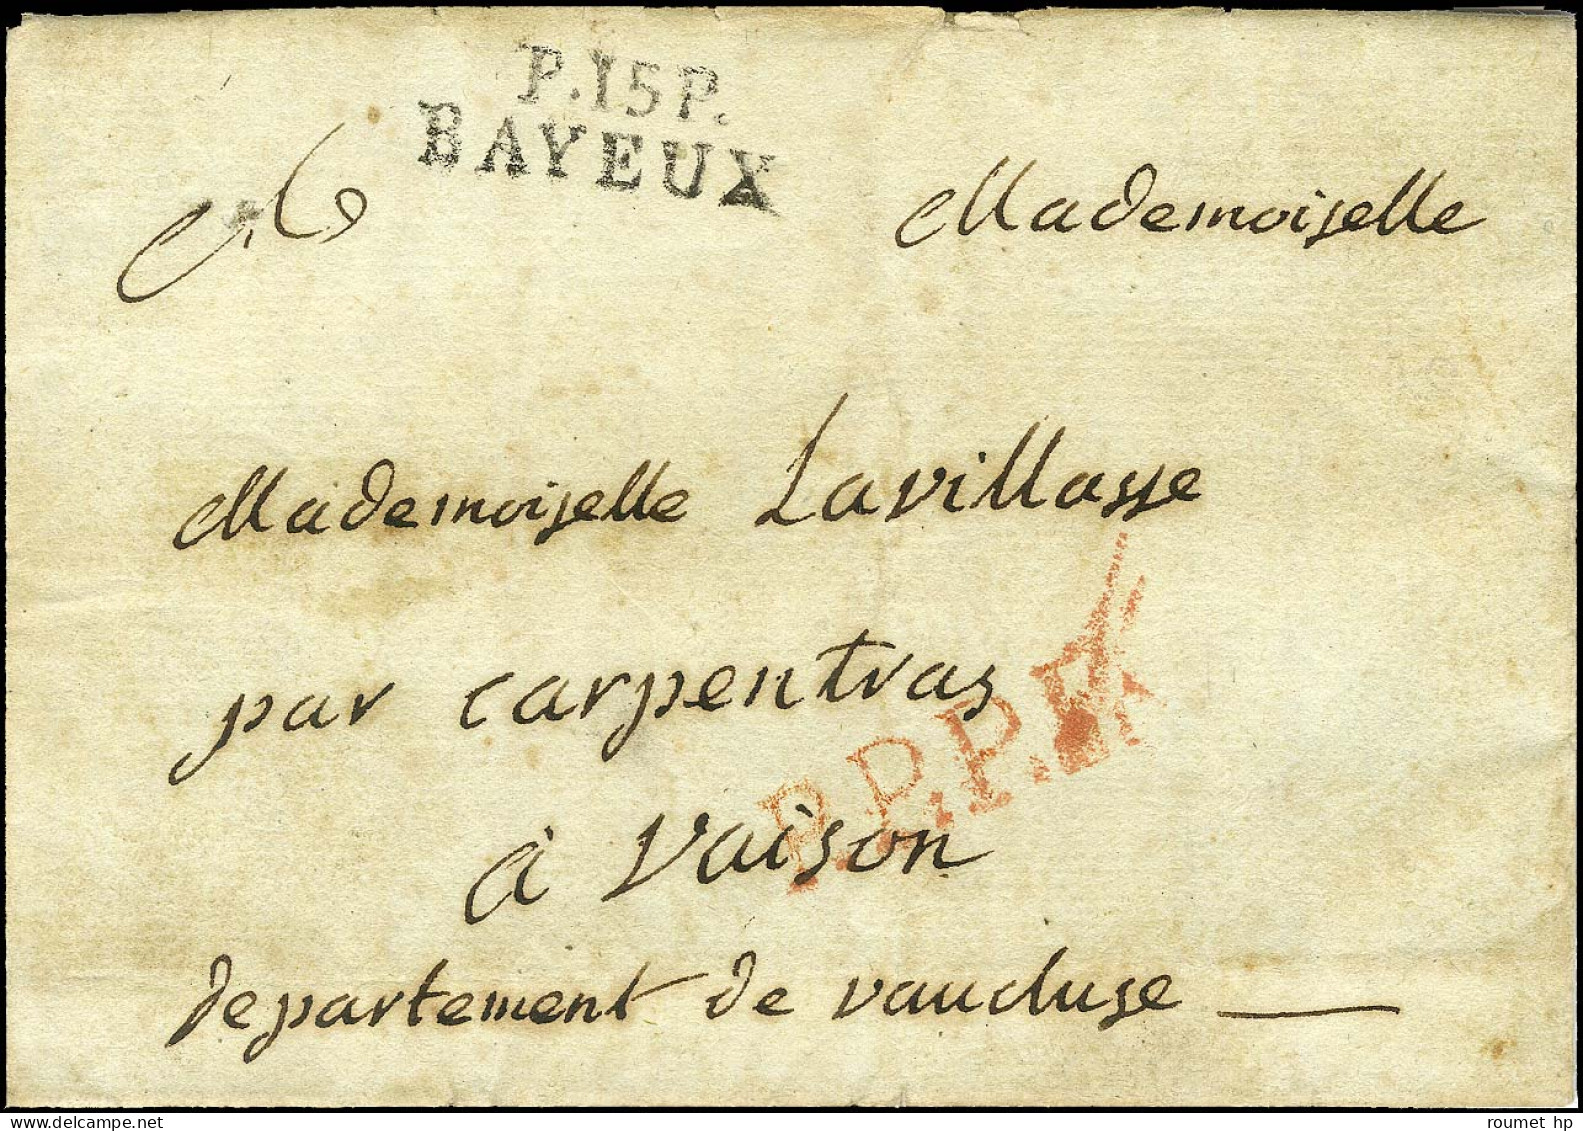 P.15P.
BAYEUX
Mademoiselle
Mademoiselle Lavillasse
par carpentras
P.P.P.P.
à Vaison
departement de vaucluse
roumet hp